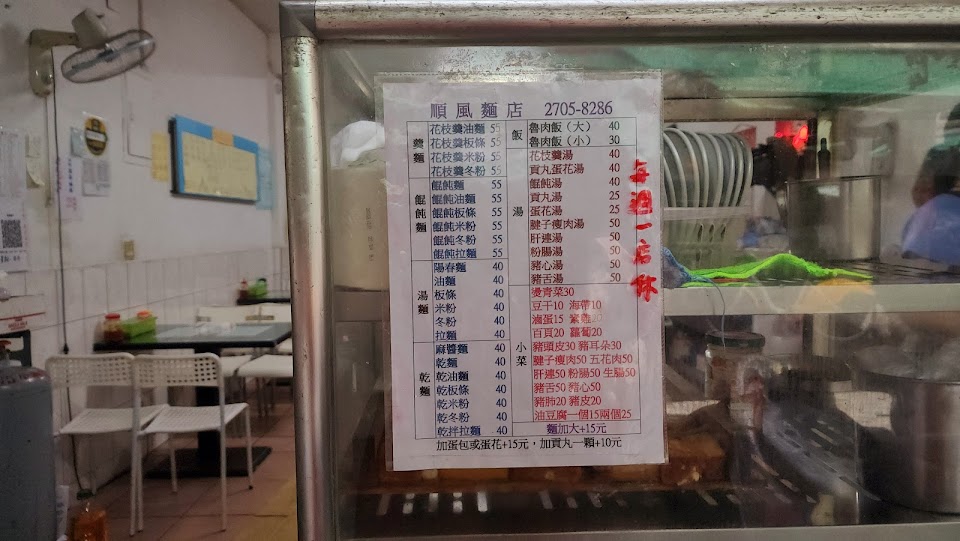 順風麵店 2705-8286
羹麵
花枝羹油麵 55
花枝羹板條 55
花枝羹米粉 55
花枝羹冬粉 55
餛飩麵
餛飩麵 55
餛飩油麵 55
餛飩板條 55
餛飩米粉 55
餛飩冬粉 55
餛飩拉麵 55
湯麵
陽春麵 40
油麵 40
板條 40
米粉 40
冬粉 40
拉麵 40
乾麵
麻醬麵 40
乾麵 40
乾油麵 40
乾板條 40
乾米粉 40
乾冬粉 40
乾拌拉麵 40
飯
魯肉飯（大） 40
魯肉飯（小） 30
湯
花枝羹湯 40
貢丸蛋花湯 40
餛飩湯 40
貢丸湯 25
蛋花湯 25
腱子瘦肉湯 50
肝連湯 50
粉腸湯 50
豬心湯 50
豬舌湯 50
小菜
燙青菜30
豆干10 海帶10
滷蛋15
百頁20 蘿蔔20
豬頭皮30 豬耳朵30
腱子瘦肉50 五花肉50
肝連50 粉腸50 生腸50
豬舌50 豬心50
豬肺20 豬皮20
油豆腐一個15兩個25
麵加大+15元
加蛋包或蛋花+15元，加貢丸一顆+10元
每週一店休